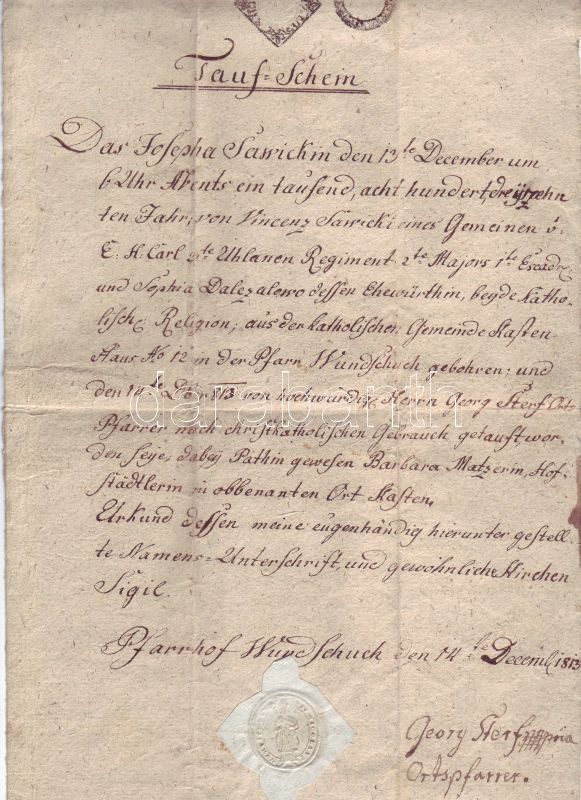 Tauf-Schein
Das Josepha Sawickin den 13te December um
6 Uhr Abents ein tausend, acht hundert, dreyzehn
ten Jahr, von Vincenz Sawicki eines Gemeinen v:
E: H: Carl 2te Uhlanen Regiment 2te Majors 1te Escadr:
und Sophia Dalezalowo dessen Ehewürthin, beyde katho-
lische Religion, aus der katholischen Gemeinde Kasten
Haus No 12 in der Pfarr Wundschuch gebohren; und
den 14te 813 von hochwürdig Herrn Georg Sterf Orts
Pfarrer nach christkatholischen Gebrauch getauft wor-
den seye, dabey Pathin gewesen Barbara Matzerin, Hof-
städlerin in obbenanten Ort Kasten,
Urkund dessen meine eugenhändig hierunter gestell-
te Namens-Unterschrift, und gewöhnliche Kirchen
Sigil.
Pfarrhof Wundschuch den 14te Decemb 1813
Georg Sterf
Ortspfarrer.
darabanth